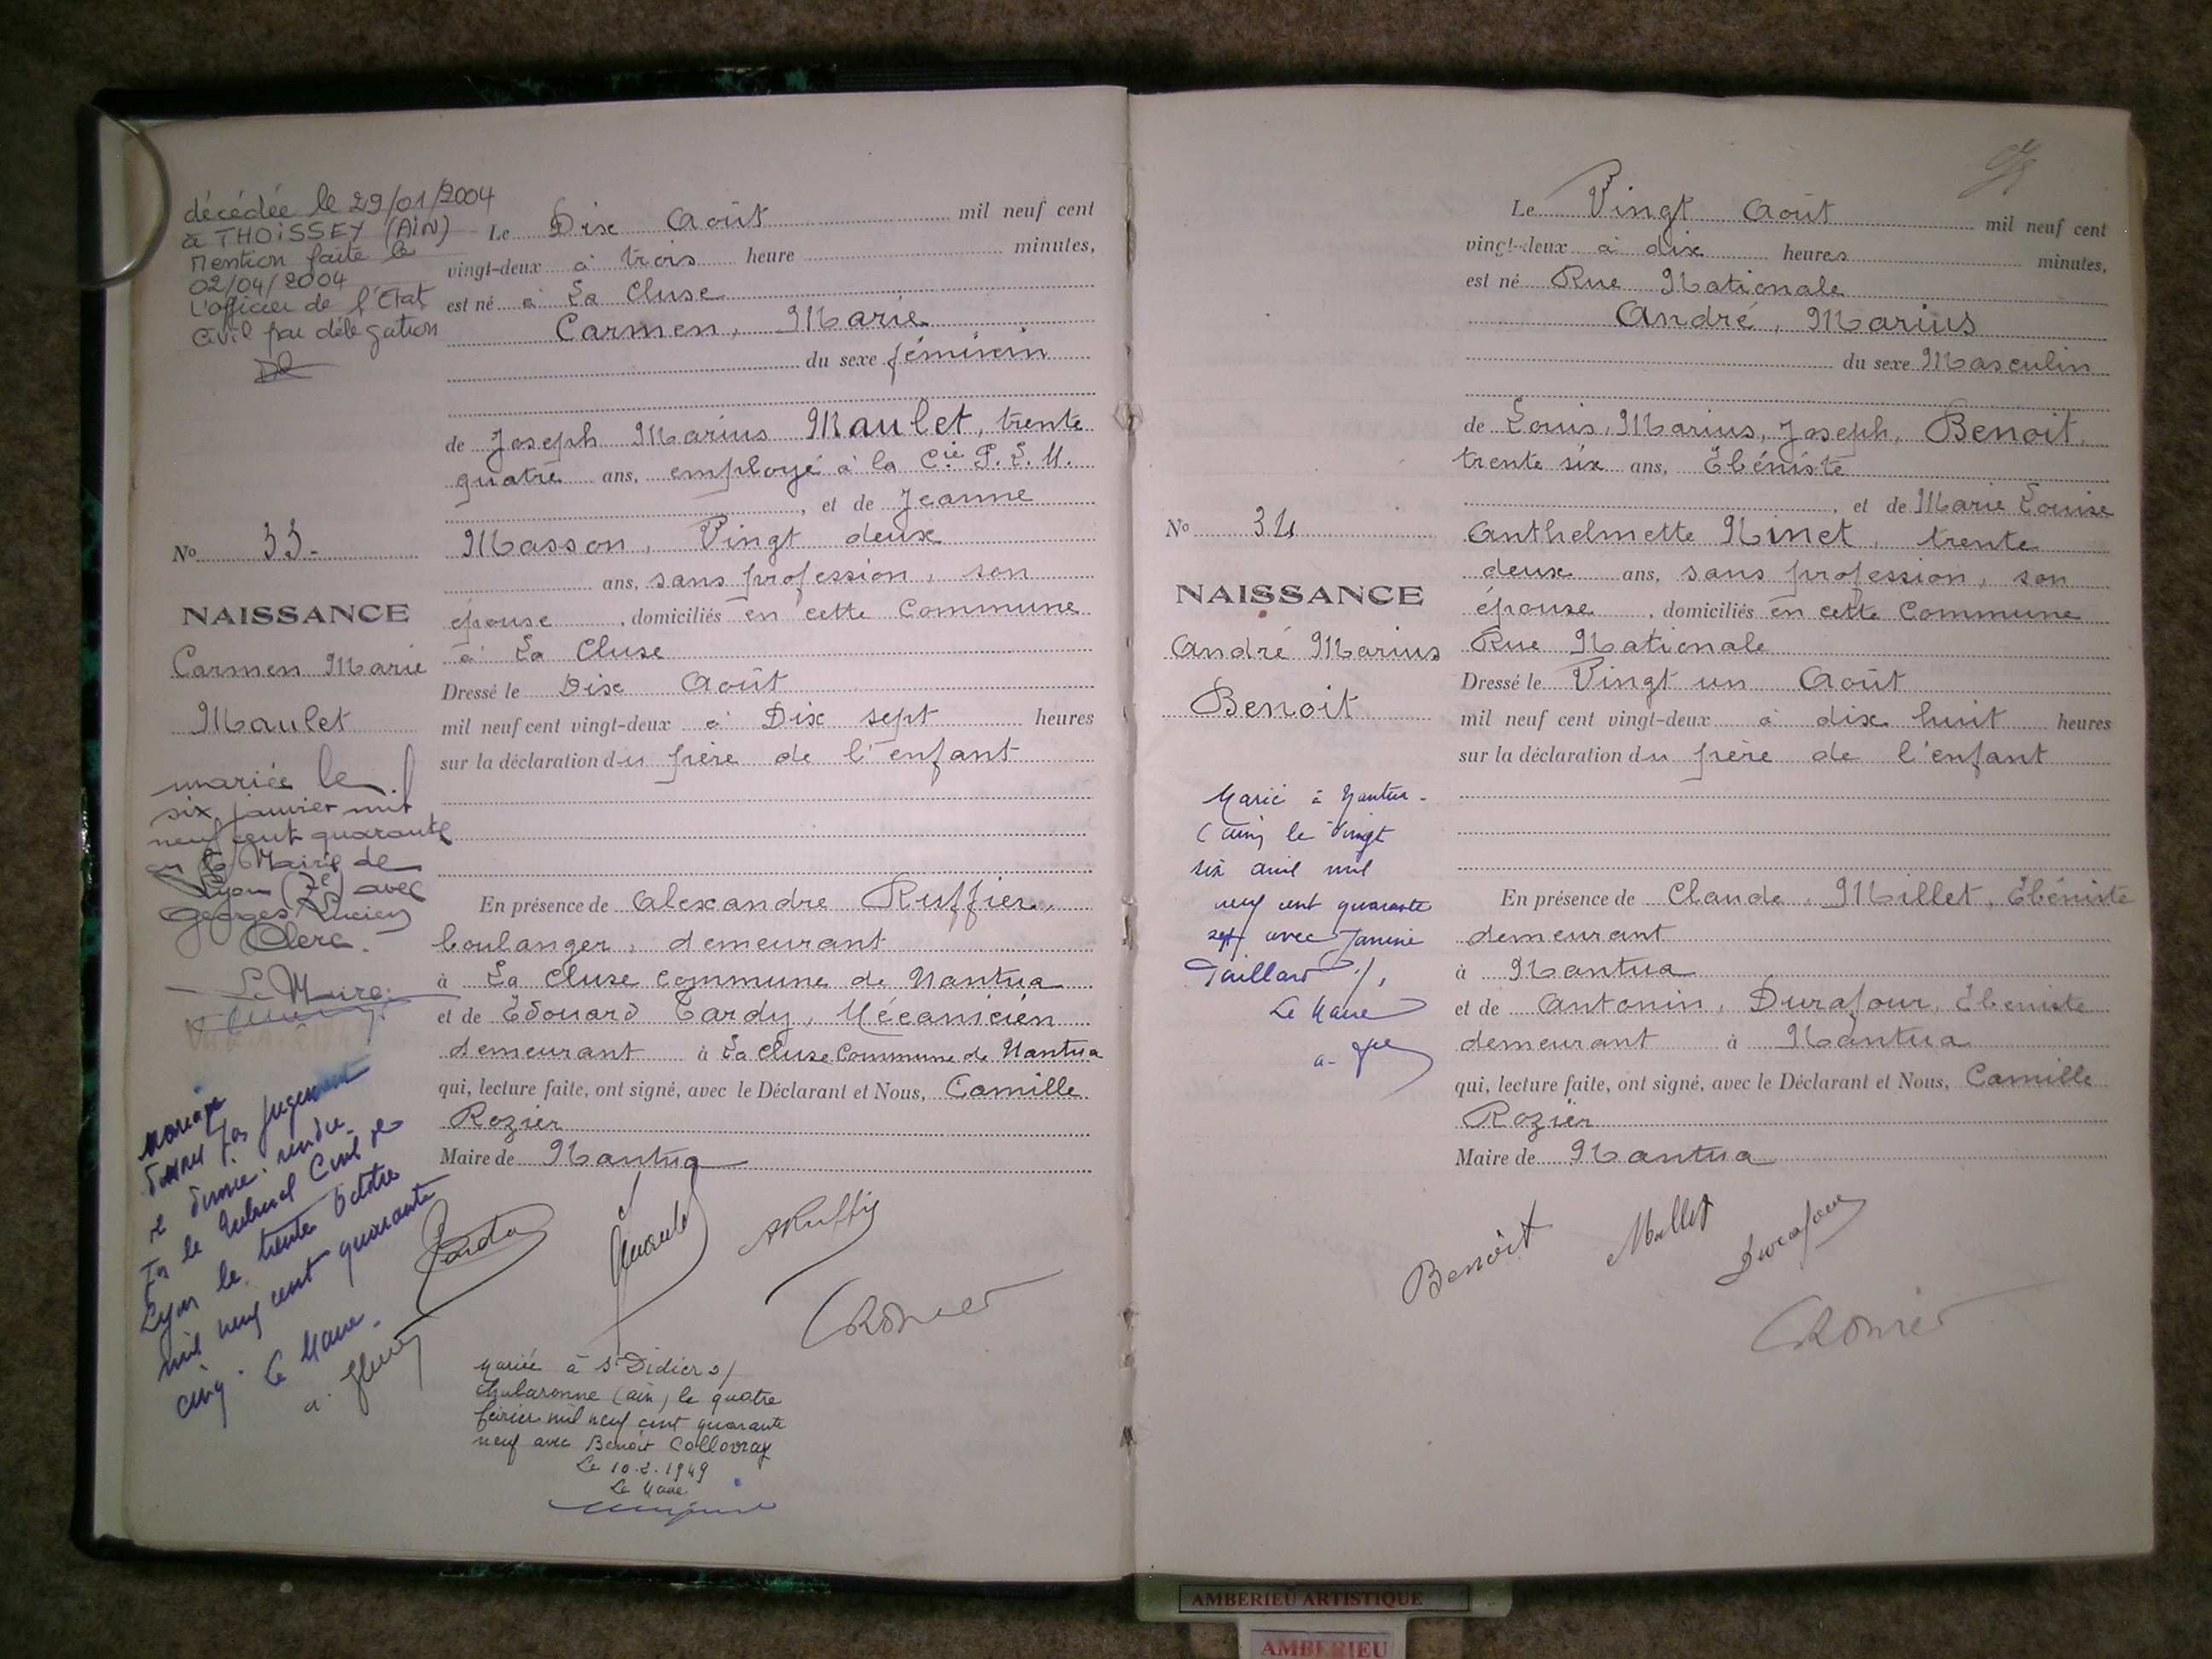 décédée le 29/01/2004
à THOISSEY (AIN)
Mention faite le
02/04/2004
L'officier de l'Etat
Civil par délégation
Le Dix Août mil neuf cent
vingt-deux à trois heure minutes,
est né à La Cluse
Carmen, Marie
du sexe féminin
de Joseph Marius Maulet, trente
quatre ans, employé à la Cie P. L. M.
, et de Jeanne
Masson, Vingt deux
ans, sans profession, son
épouse , domiciliés en cette Commune
à La Cluse
Dressé le Dix Août
mil neuf cent vingt-deux à Dix sept heures
sur la déclaration du père de l'enfant
En présence de Alexandre Ruffier,
boulanger, demeurant
à La Cluse Commune de Nantua
et de Edouard Tardy, Mécanicien
demeurant à La Cluse Commune de Nantua
qui, lecture faite, ont signé, avec le Déclarant et Nous, Camille
Rozier
Maire de Nantua
No 33-
NAISSANCE
Carmen Marie
Maulet
mariée le
six janvier mil
neuf cent quarante
en la Mairie de
Lyon (2e) avec
Georges Lucien
Clerc.
Le Maire:
Mariage
par jugement
de divorce rendu
par le Tribunal Civil de
Lyon le trente Octobre
mil neuf cent quarante
cinq. Le Maire.
Tardy
Maulet
ARuffier
CRozier
Mariée à St Didier s/
Chalaronne (ain) le quatre
février mil neuf cent quarante
neuf avec Benoît Collovray
Le 10.2.1949
Le Maire
Le Vingt Août mil neuf cent
vingt-deux à dix heures minutes,
est né Rue Nationale
André, Marius
du sexe Masculin
de Louis, Marius, Joseph, Benoit,
trente six ans, Ebéniste
, et de Marie Louise
Anthelmette Ninet, trente
deux ans, sans profession, son
épouse , domiciliés en cette Commune
Rue Nationale
Dressé le Vingt un Août
mil neuf cent vingt-deux à dix huit heures
sur la déclaration du père de l'enfant
En présence de Claude, Millet, Ebéniste
demeurant
à Nantua
et de Antonin, Durafour, Ebéniste
demeurant à Nantua
qui, lecture faite, ont signé, avec le Déclarant et Nous, Camille
Rozier
Maire de Nantua
No 34
NAISSANCE
André Marius
Benoit
Marié à Nantua
(ain) le Vingt
six avril mil
neuf cent quarante
sept avec Janine
Taillard
Le Maire
Benoit
Millet
Durafour
CRozier
AMBERIEU ARTISTIQUE
AMBERIEU